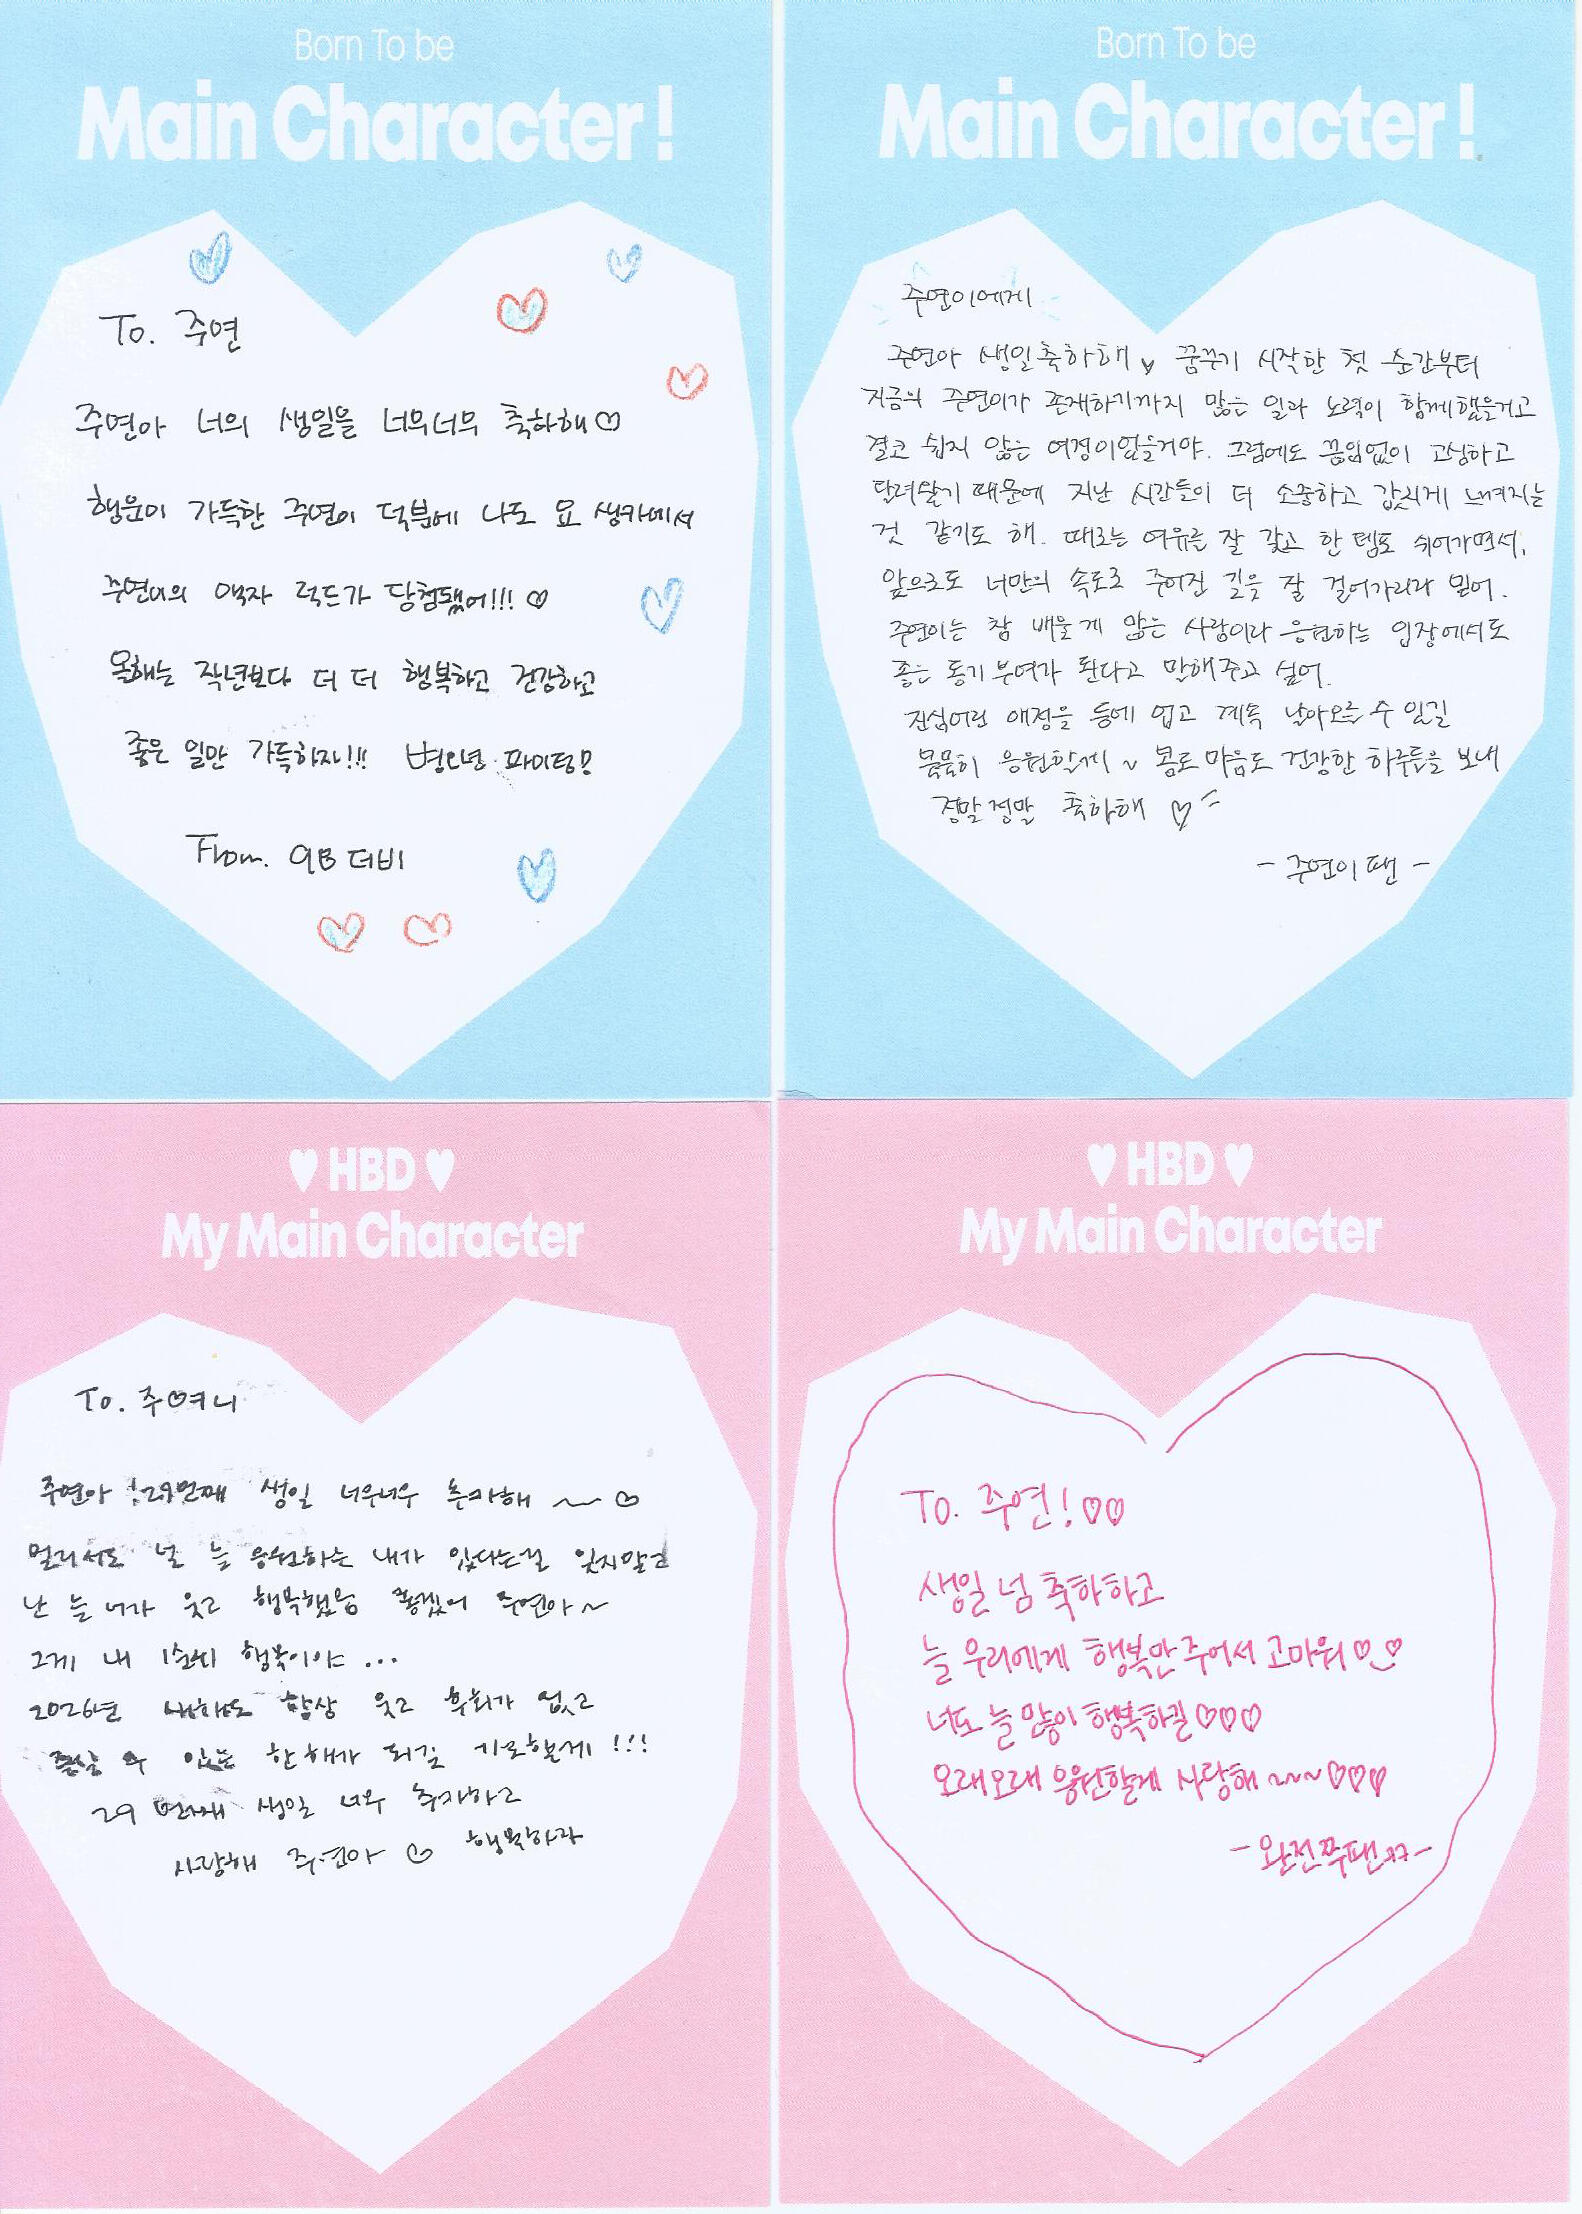 Born To be
Main Character!
To. 주연
주연아 너의 생일을 너무너무 축하해♡
행운이 가득한 주연이 덕분에 나도 요 생카에서
주연이의 액자 럭드가 당첨됐어!!! ♡
올해는 작년보다 더 더 행복하고 건강하고
좋은 일만 가득하자!!! 병오년 파이팅!
From. QB 더비
Born To be
Main Character!
주연이에게
주연아 생일축하해♥ 꿈꾸기 시작한 첫 순간부터
지금의 주연이가 존재하기까지 많은 일과 노력이 함께했을거고
결코 쉽지 않은 여정이었을거야. 그럼에도 끊임없이 고심하고
달려왔기 때문에 지난 시간들이 더 소중하고 값지게 느껴지는
것 같기도 해. 때로는 여유를 잘 갖고 한 템포 쉬어가면서,
앞으로도 너만의 속도로 주어진 길을 잘 걸어가리라 믿어.
주연이는 참 배울 게 많은 사람이라 응원하는 입장에서도
좋은 동기 부여가 된다고 말해주고 싶어.
진심어린 애정을 등에 업고 계속 날아오를 수 있길
묵묵히 응원할게 ~ 몸도 마음도 건강한 하루들을 보내
정말정말 축하해 ♡
- 주연이 팬 -
♥ HBD ♥
My Main Character
To. 주여니
주연아 !29번째 생일 너무너무 추카해 ~~ ♡
멀리서도 널 늘 응원하는 내가 있다는걸 잊지말고
난 늘 너가 웃고 행복했음 좋겠어 주연아~
그게 내 1순위 행복이야 ...
2026년 새해도 항상 웃고 후회가 없고
즐길 수 있는 한 해가 되길 기도할게 !!!
29 번째 생일 너무 추카하고
사랑해 주연아 ♡ 행복하자
♥ HBD ♥
My Main Character
To. 주연!♡♡
생일 넘 축하하고
늘 우리에게 행복만 주어서 고마워♡_♡
너도 늘 많이 행복하길♡♡♡
오래오래 응원할게 사랑해 ~~~♡♡♡
-완전쭈팬